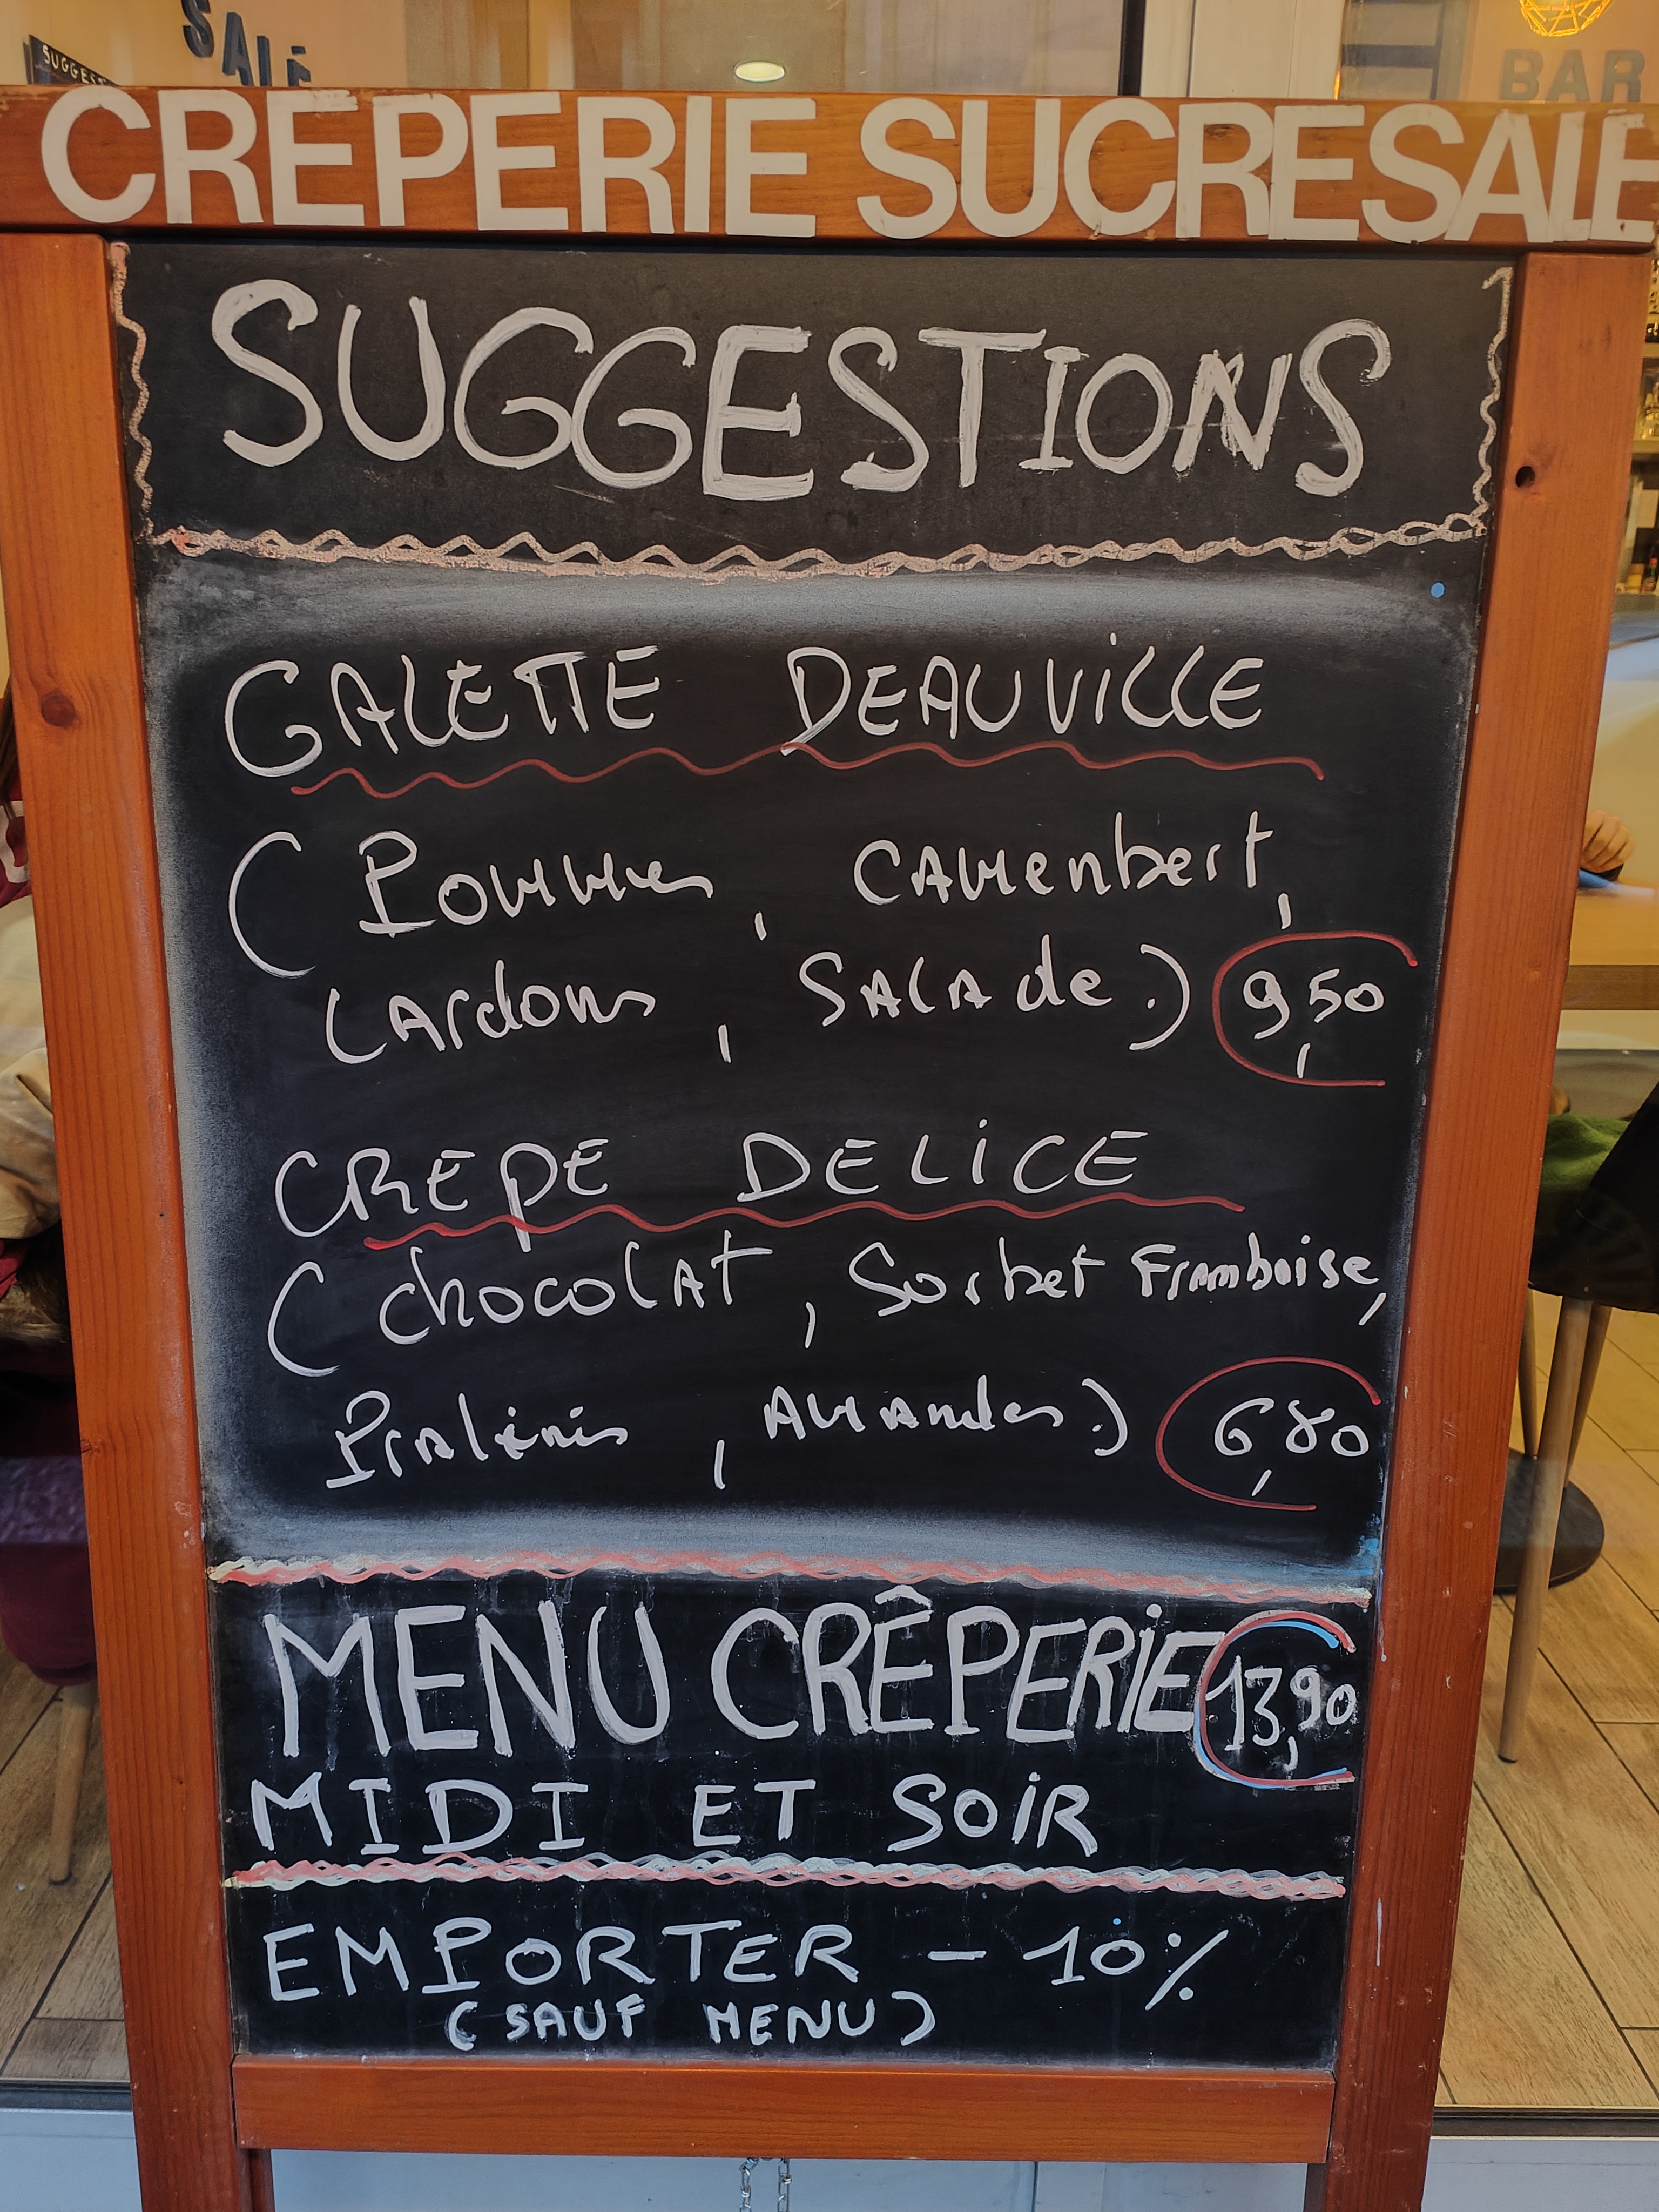 SUGGEST
SALÉ
BAR
CREPERIE SUCRESALE
SUGGESTIONS
GALETTE DEAUVILLE
( Pommes, CAMenbert,
LArdons, SALAde.) 9,50
CREPE DELiCE
( chocolAt, Sorbet Framboise,
PrAlinés, AMAndes.) 6,80
MENU CRÊPERiE 13,90
MIDI ET SOiR
EMPORTER - 10%
(SAUF MENU)